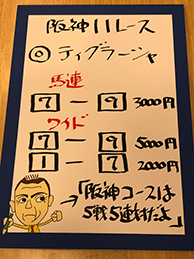 阪神11レース
◎ ティグラーシャ
馬連
7 - 9 3000円
ワイド
7 - 9 5000円
1 - 7 2000円
→「阪神コースは
5戦5連対だよ」